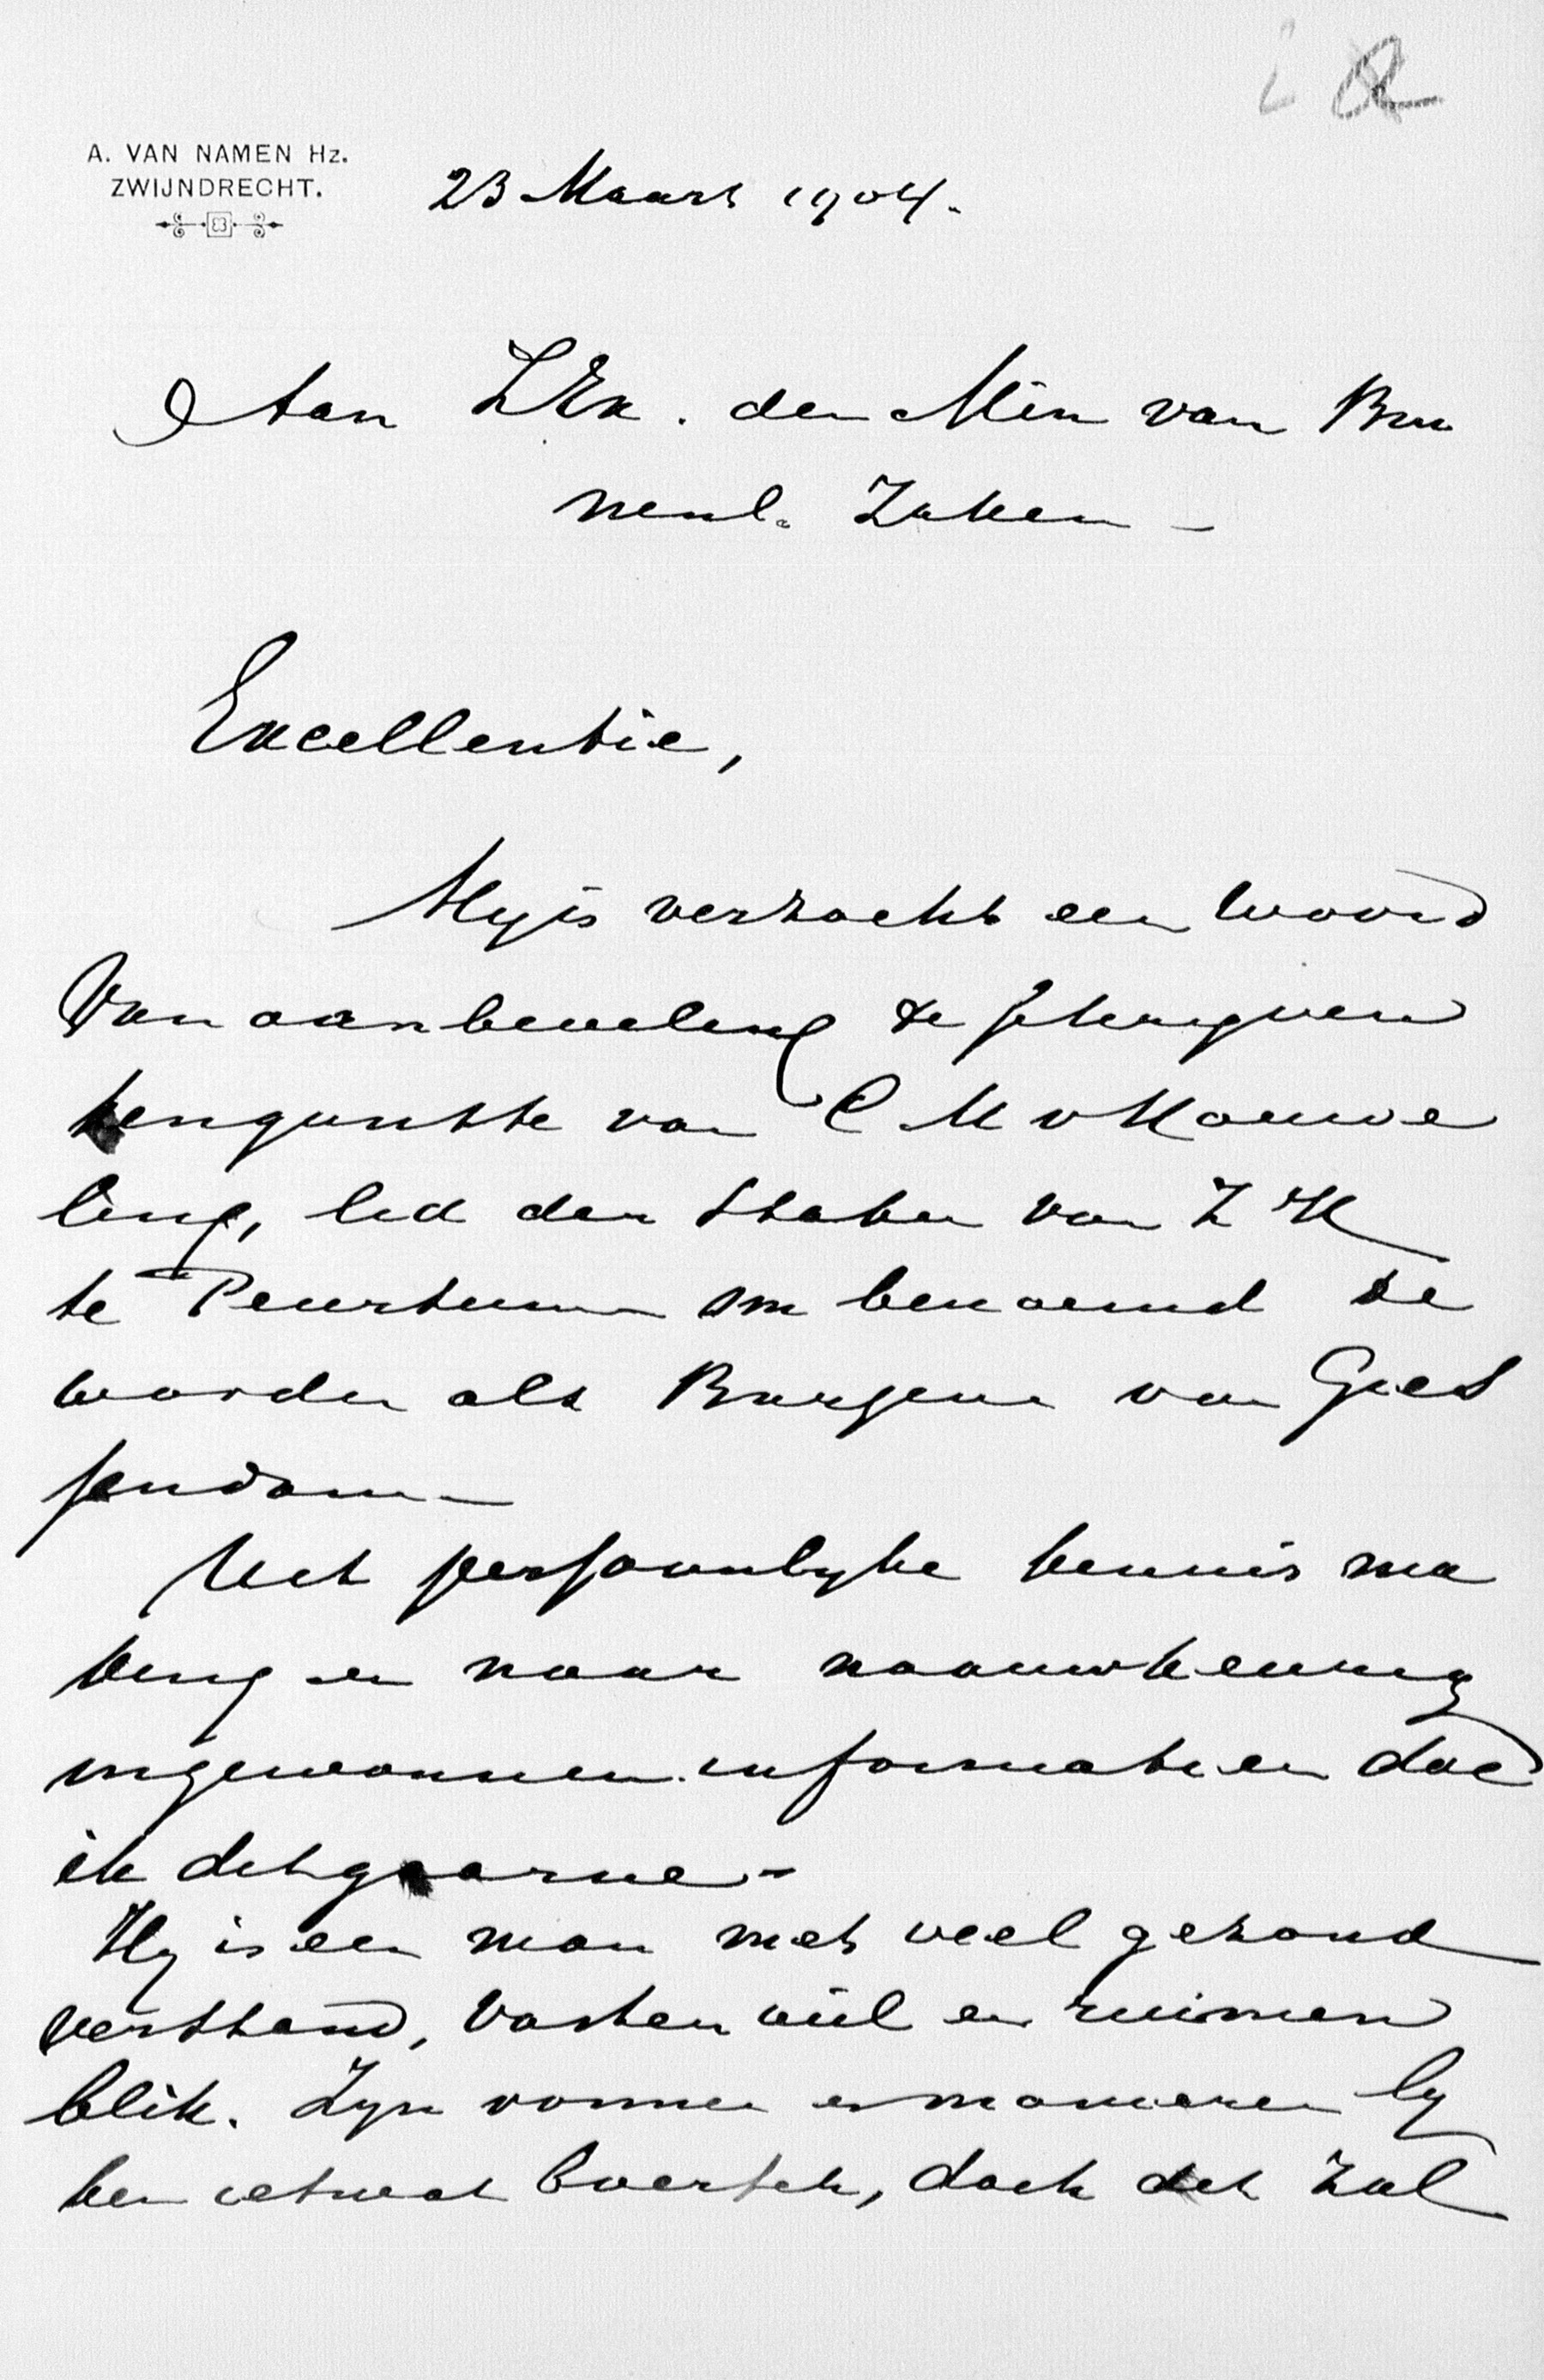 A. VAN NAMEN Hz.
ZWIJNDRECHT.
23 Maart 1904.
Aan ZEx. den Min van Bin
nenl. Zaken -
Excellentie,
My is verzocht een woord
van aanbeveling te schrijven
tengunste van C M v Houwe
ling, lid der Staten van Z H
te Peursum om benoemd te
worden als Burgem van Gies
sendam -
Uit persoonlyke kennis ma
king en naar naauwkeurig
ingewonnen informatien doe
ik dit gaarne -
Hy is een man met veel gezond
verstand, vasten wil en ruimen
blik. Zyn vormen en manieren ly
ken ietwat boersch, doch dit zal